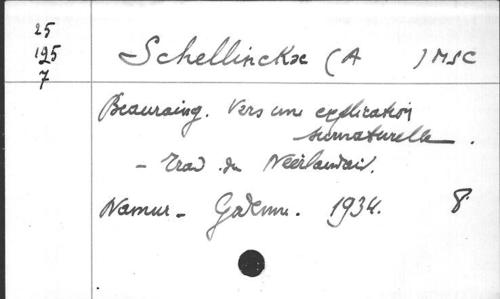 25
195
7
Schellinckx (A ) MSC
Beauraing. Vers une explication
surnaturelle.
- Trad. du Néerlandais.
Namur - Godenne. 1934. 8.